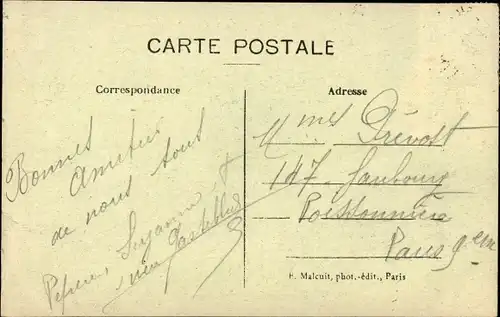 CARTE POSTALE
Correspondance
Bonnes
Amitiés
de nous tous
Suzanne
Adresse
Mmes Prévost
147 faubourg
Poissonnière
Paris 9em
F. Malcuit, phot.-édit., Paris